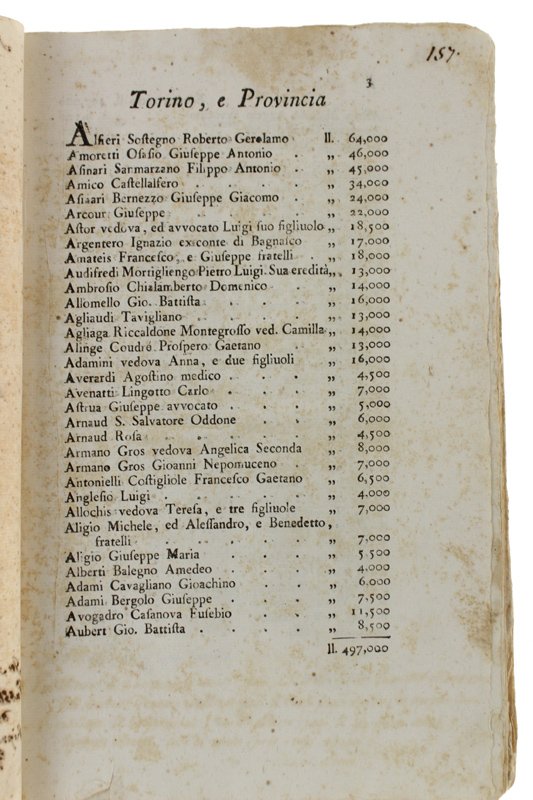 157.
3
Torino, e Provincia
Alfieri Sostegno Roberto Gerolamo ll. 64,000
Amoretti Osasio Giuseppe Antonio . „ 46,000
Asinari Sanmarzano Filippo Antonio . „ 45,000
Amico Castellalfero . . . . „ 34,000
Asinari Bernezzo Giuseppe Giacomo . „ 24,000
Arcour Giuseppe . . . . „ 22,000
Astor vedova, ed avvocato Luigi suo figliuolo „ 18,500
Argentero Ignazio ex conte di Bagnasco „ 17,000
Amateis Francesco, e Giuseppe fratelli . „ 18,000
Audifredi Mortigliengo Pietro Luigi. Sua eredità „ 13,000
Ambrosio Chialamberto Domenico . „ 14,000
Allomello Gio. Battista . . . „ 16,000
Agliaudi Tavigliano . . . . „ 13,000
Agliaga Riccaldone Montegrosso ved. Camilla „ 14,000
Alinge Coudré Prospero Gaetano . „ 13,000
Adamini vedova Anna, e due figliuoli „ 16,000
Averardi Agostino medico . . . „ 4,500
Avenatti Lingotto Carlo . . . „ 7,000
Astrua Giuseppe avvocato . . . „ 5,000
Arnaud S. Salvatore Oddone . . „ 6,000
Arnaud Rosa . . . . . „ 4,500
Armano Gros vedova Angelica Seconda „ 8,000
Armano Gros Gioanni Nepomuceno . „ 7,000
Antonielli Costigliole Francesco Gaetano „ 6,500
Anglesio Luigi . . . . . „ 4,000
Allochis vedova Teresa, e tre figliuole „ 7,000
Aligio Michele, ed Alessandro, e Benedetto,
fratelli . . . . . „ 7,000
Aligio Giuseppe Maria . . . „ 5,500
Alberti Balegno Amedeo . . . „ 4,000
Adami Cavagliano Gioachino . . „ 6,000
Adami Bergolo Giuseppe . . . „ 7,500
Avogadro Casanova Eusebio . . „ 11,500
Aubert Gio. Battista . . . . „ 8,500
ll. 497,000